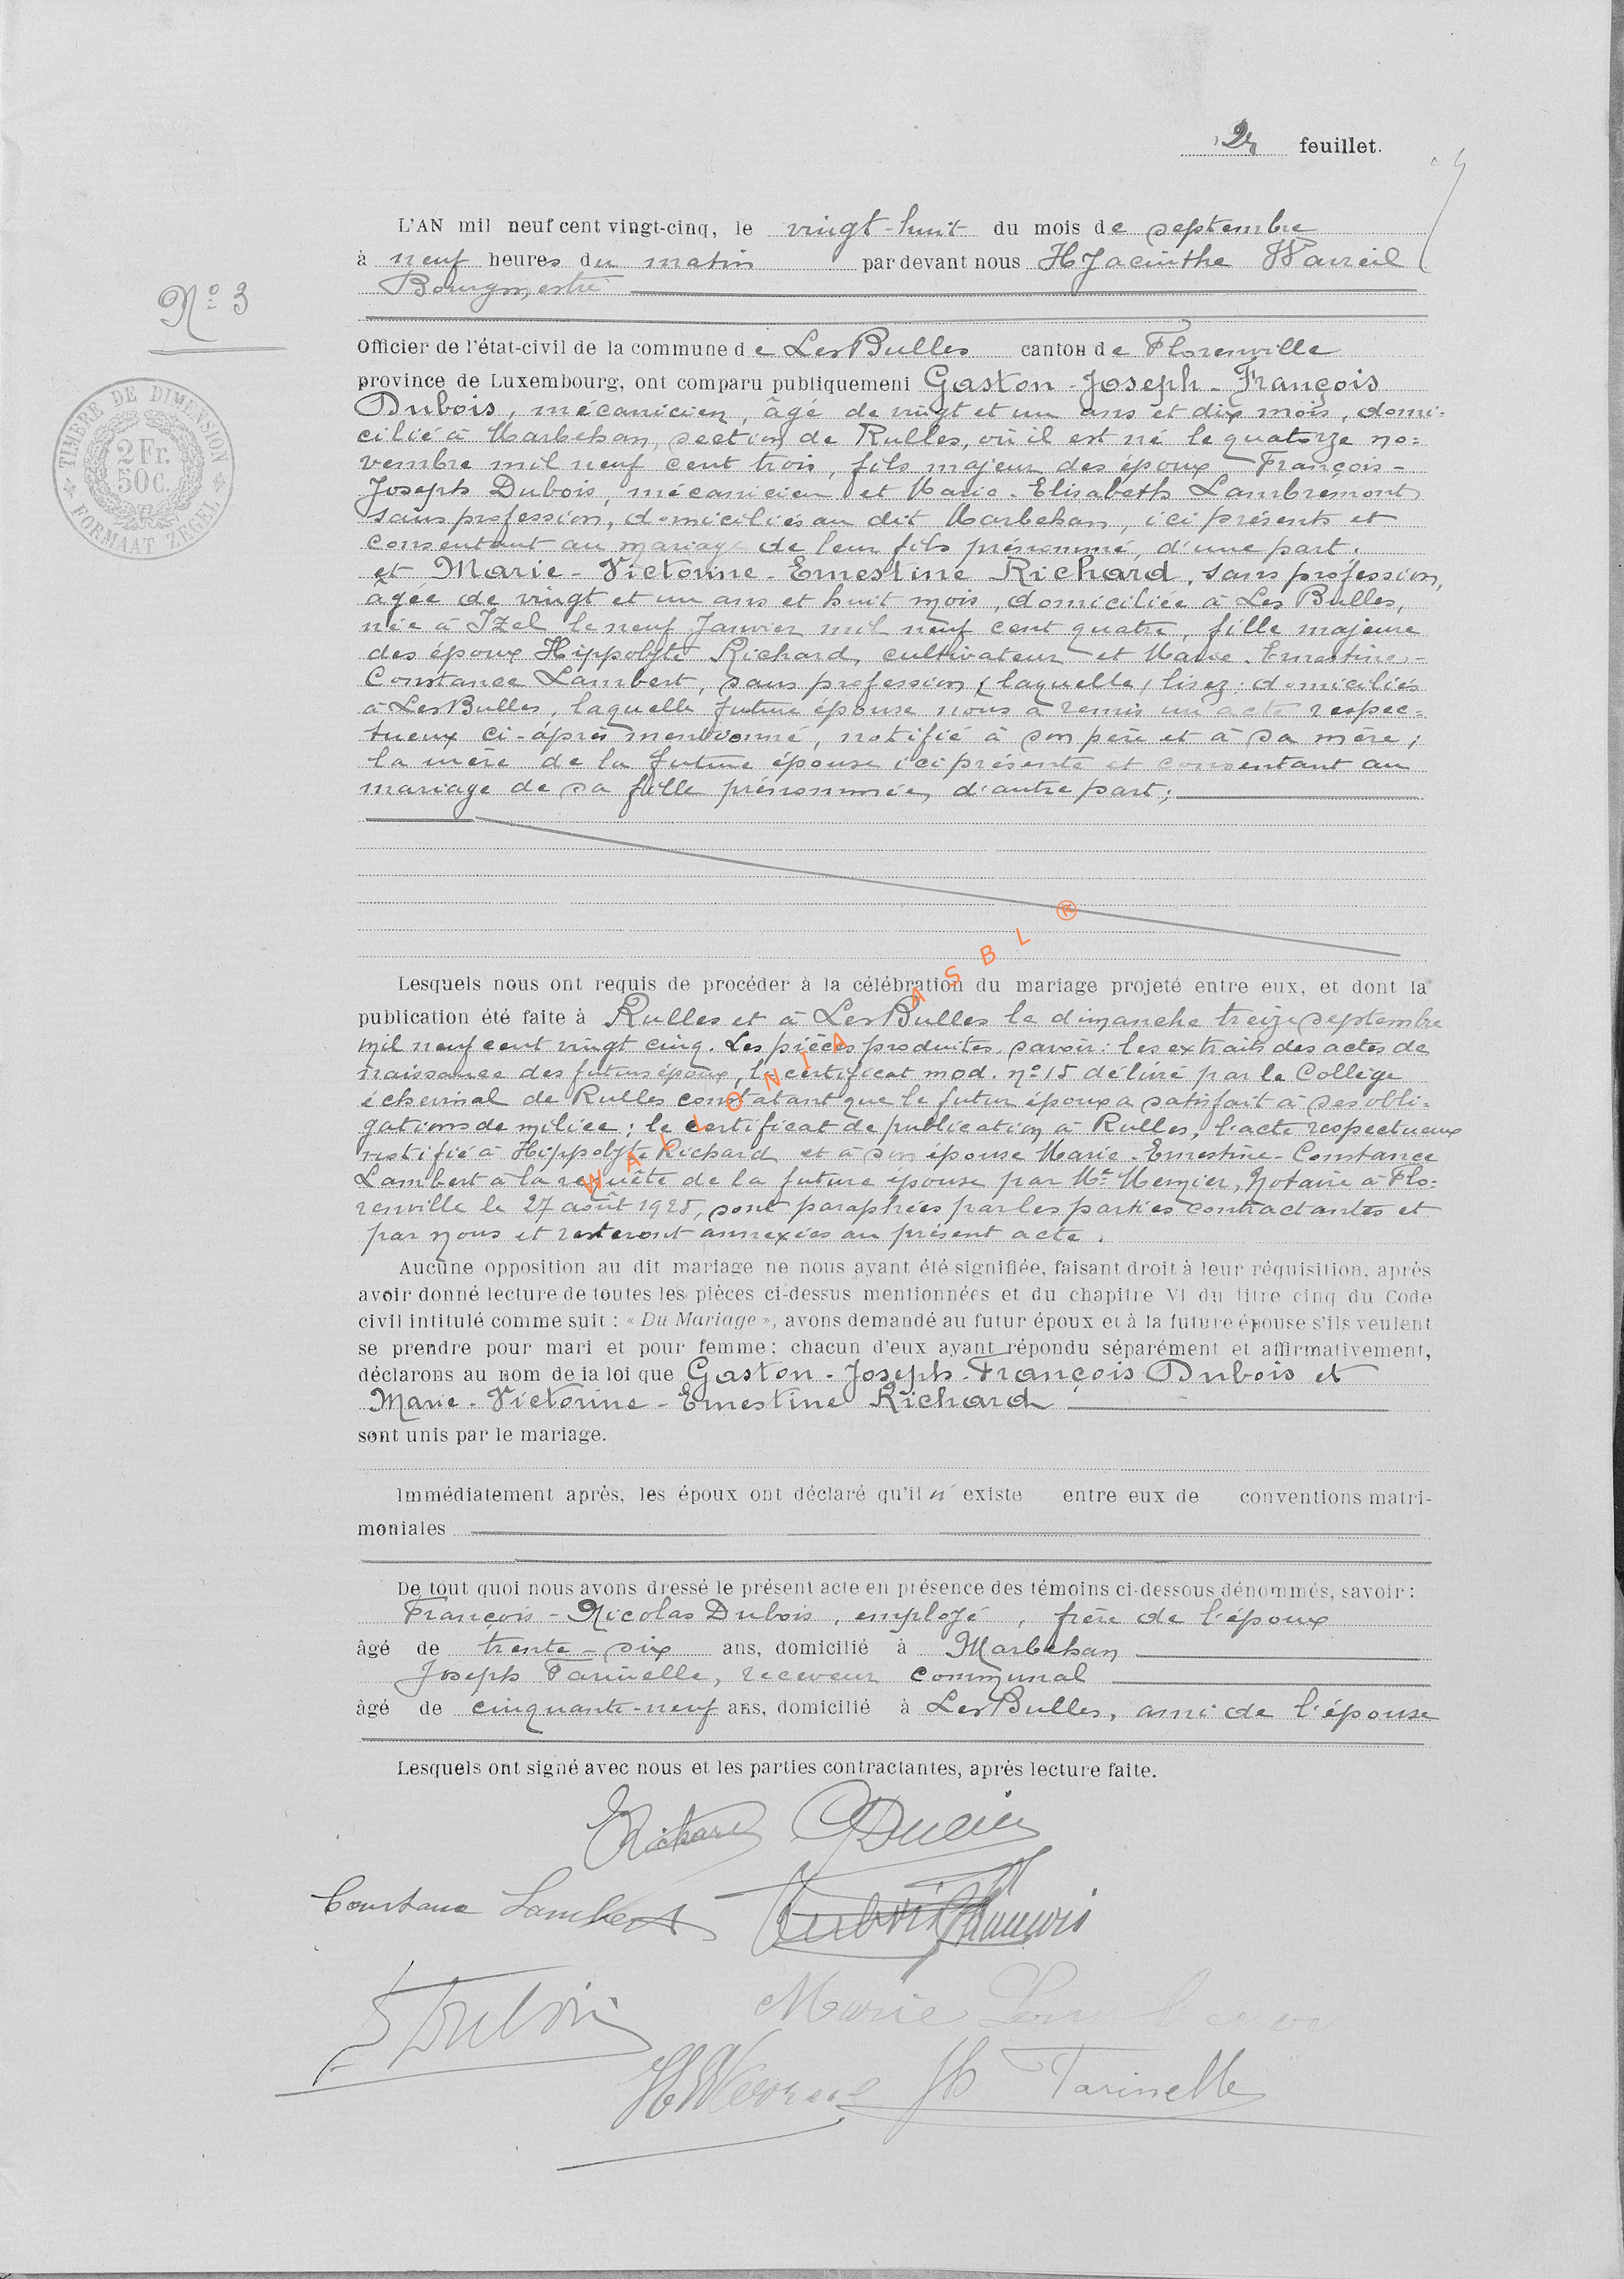 2e feuillet.
L'AN mil neuf cent vingt-cinq, le vingt-huit du mois de septembre
à neuf heures du matin par devant nous HJacinthe
Bourgmestre
N° 3
Officier de l'état-civil de la commune de Les Bulles canton de Florenville
province de Luxembourg, ont comparu publiquement Gaston - Joseph - François
TIMBRE DE DIMENSION
2 Fr.
50 C.
FORMAAT ZEGEL
Dubois, mécanicien, âgé de vingt et un ans et dix mois, domi-
cilié à Marbehan, section de Rulles, où il est né le quatorze no=
vembre mil neuf cent trois, fils majeur des époux François -
Joseph Dubois, mécanicien et Marie - Elisabeth Lambremont
sans profession, domiciliés au dit Marbehan, ici présents et
consentant au mariage de leur fils prénommé, d'une part.
et Marie - Victorine - Ernestine Richard, sans profession,
âgée de vingt et un ans et huit mois, domiciliée à Les Bulles,
née à Izel le neuf Janvier mil neuf cent quatre, fille majeure
des époux Hippolyte Richard, cultivateur et Marie - Ernestine -
Constance Lambert, sans profession (laquelle) lisez : domiciliés
à Les Bulles, laquelle future épouse nous a remis un acte respec=
tueux ci-après mentionné, notifié à son père et à sa mère ;
la mère de la future épouse ici présente et consentant au
mariage de sa fille prénommée, d'autre part ;
Lesquels nous ont requis de procéder à la célébration du mariage projeté entre eux, et dont la
publication été faite à Rulles et à Les Bulles le dimanche treize septembre
mil neuf cent vingt cinq. Les pièces produites, savoir : les extraits des actes de
naissance des futurs époux, le certificat mod. n° 15 délivré par le Collège
échevinal de Rulles constatant que le futur époux a satisfait à ses obli-
gations de milice ; le certificat de publication à Rulles, l'acte respectueux
notifié à Hippolyte Richard et à son épouse Marie - Ernestine - Constance
Lambert à la requête de la future épouse par Me Notaire à Flo=
renville le 27 août 1925, sont paraphées par les parties contractantes et
par nous et resteront annexées au présent acte.
WALLONIA ASBL ®
Aucune opposition au dit mariage ne nous ayant été signifiée, faisant droit à leur réquisition, après
avoir donné lecture de toutes les pièces ci-dessus mentionnées et du chapitre VI du titre cinq du Code
civil intitulé comme suit : « Du Mariage », avons demandé au futur époux et à la future épouse s'ils veulent
se prendre pour mari et pour femme ; chacun d'eux ayant répondu séparément et affirmativement,
déclarons au nom de la loi que Gaston - Joseph - François Dubois et
Marie - Victorine - Ernestine Richard
sont unis par le mariage.
Immédiatement après, les époux ont déclaré qu'il n'existe entre eux de conventions matri-
moniales
De tout quoi nous avons dressé le présent acte en présence des témoins ci-dessous dénommés, savoir :
François - Nicolas Dubois, employé, frère de l'époux
âgé de trente-six ans, domicilié à Marbehan
Joseph Farinelle, receveur communal
âgé de cinquante-neuf ans, domicilié à Les Bulles, ami de l'épouse
Lesquels ont signé avec nous et les parties contractantes, après lecture faite.
Richard
Constance Lambert Dubois François
Dubois Marie
Farinelle